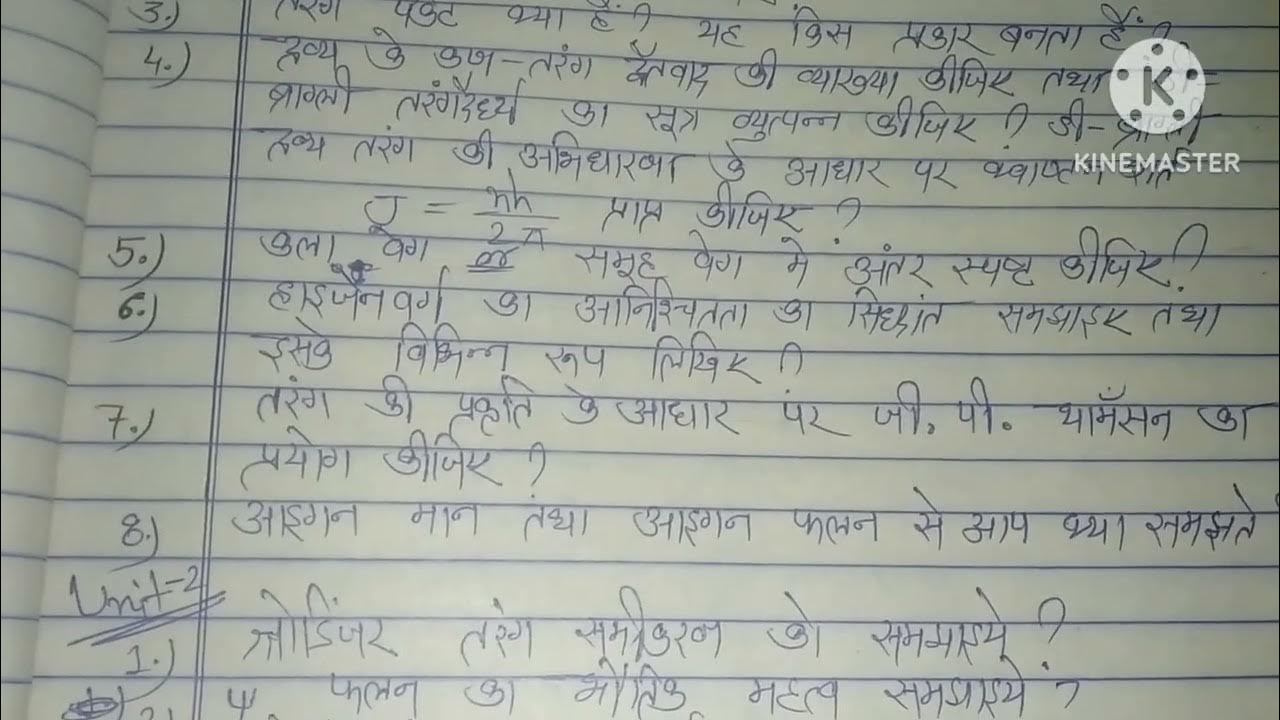 3.) तरंग पैकेट क्या हैं? यह किस प्रकार बनता हैं?
4.) द्रव्य के कण-तरंग द्वैतवाद की व्याख्या कीजिए तथा
ब्राग्ली तरंगदैर्ध्य का सूत्र व्युत्पन्न कीजिए? डी-ब्राग्ली
KINEMASTER
द्रव्य तरंग की अभिधारणा के आधार पर
J = nh/2π प्राप्त कीजिए?
5.) कला वेग or समूह वेग मे अंतर स्पष्ट कीजिए?
6.) हाइजेनवर्ग का अनिश्चितता का सिध्दांत समझाइए तथा
इसके विभिन्न रूप लिखिए?
7.) तरंग की प्रकृति के आधार पर जी. पी. थॉमसन का
प्रयोग कीजिए?
8.) आइगन मान तथा आइगन फलन से आप क्या समझते
Unit-2
1.) श्रोडिंजर तरंग समीकरण को समझाइये?
2) ψ फलन का भौतिक महत्व समझाइये?